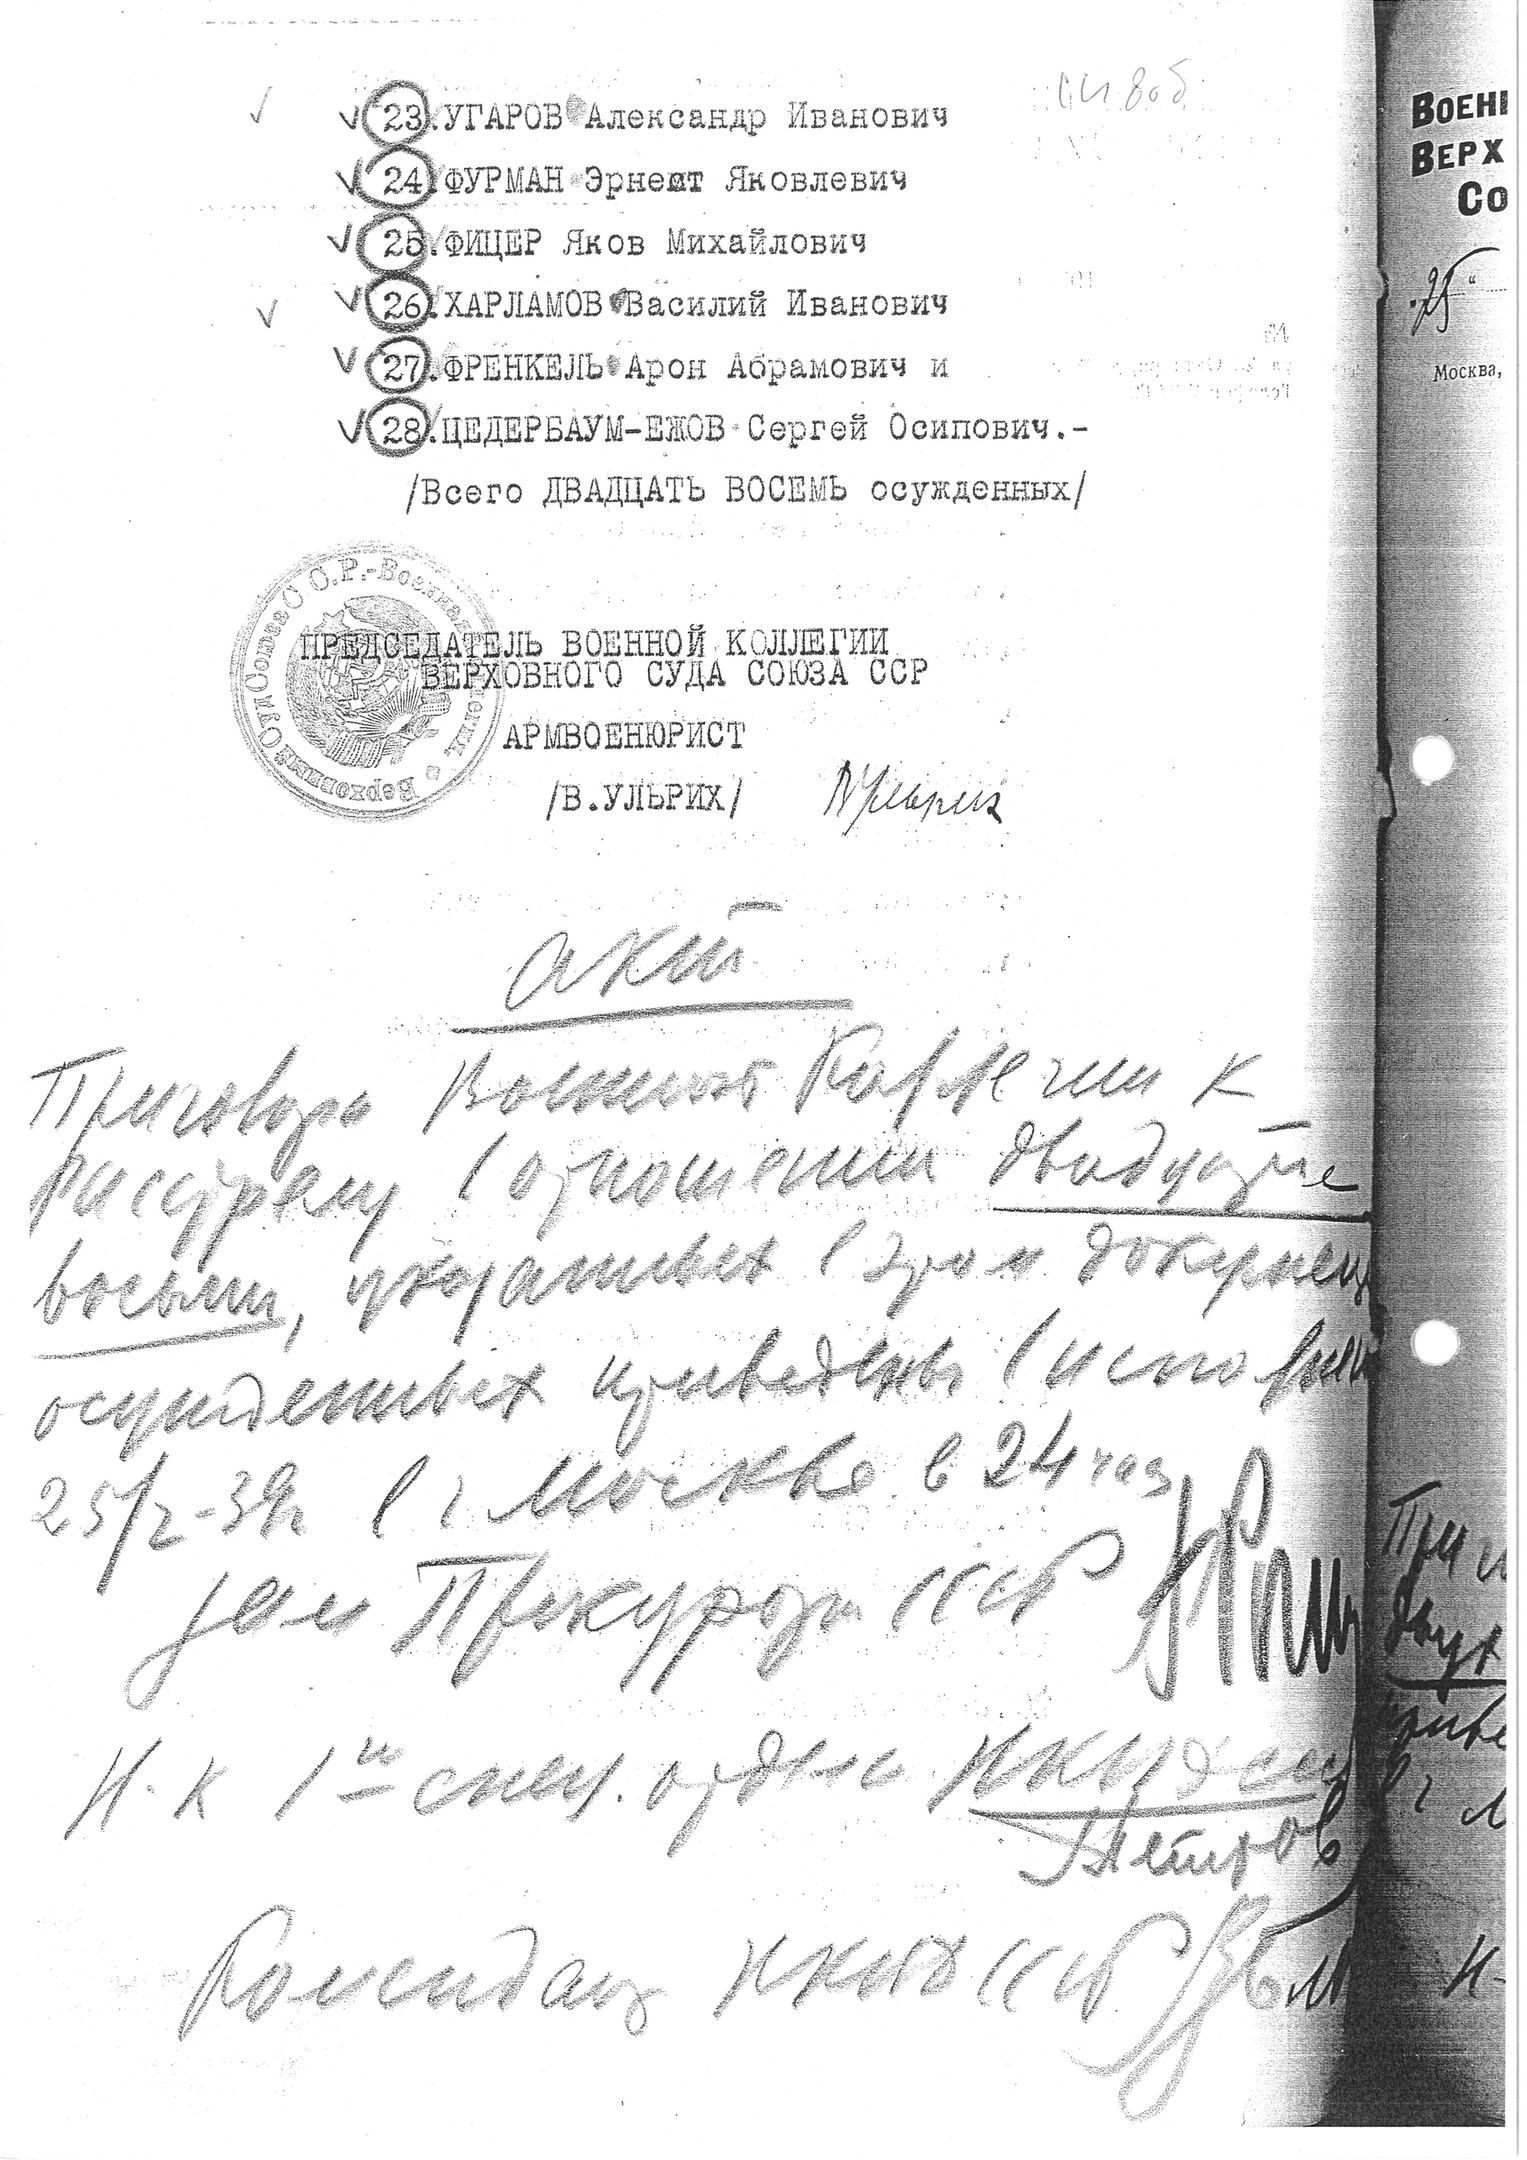 23. УГАРОВ Александр Иванович
24. ФУРМАН Эрнест Яковлевич
25. ФИЦЕР Яков Михайлович
26. ХАРЛАМОВ Василий Иванович
27. ФРЕНКЕЛЬ Арон Абрамович и
28. ЦЕДЕРБАУМ-ЕЖОВ Сергей Осипович.-
/Всего ДВАДЦАТЬ ВОСЕМЬ осужденных/
Верховный Суд Союза С.С.Р.-Военная
ПРЕДСЕДАТЕЛЬ ВОЕННОЙ КОЛЛЕГИИ
ВЕРХОВНОГО СУДА СОЮЗА ССР
АРМВОЕНЮРИСТ
/В.УЛЬРИХ/ ВУльрих
Акт
Приговора Военной Коллегии к
расстрелу в отношении двадцати
восьми, указанных в этом
осужденных приведены в
25/ -39г в г Москве в 24 час
Зам Прокурора СССР
Н-к 1го спец. отдела НКВД ссср
Петров
Комендант НКВД СССР
ВОЕН
ВЕРХ
СО
"25"
Москва,